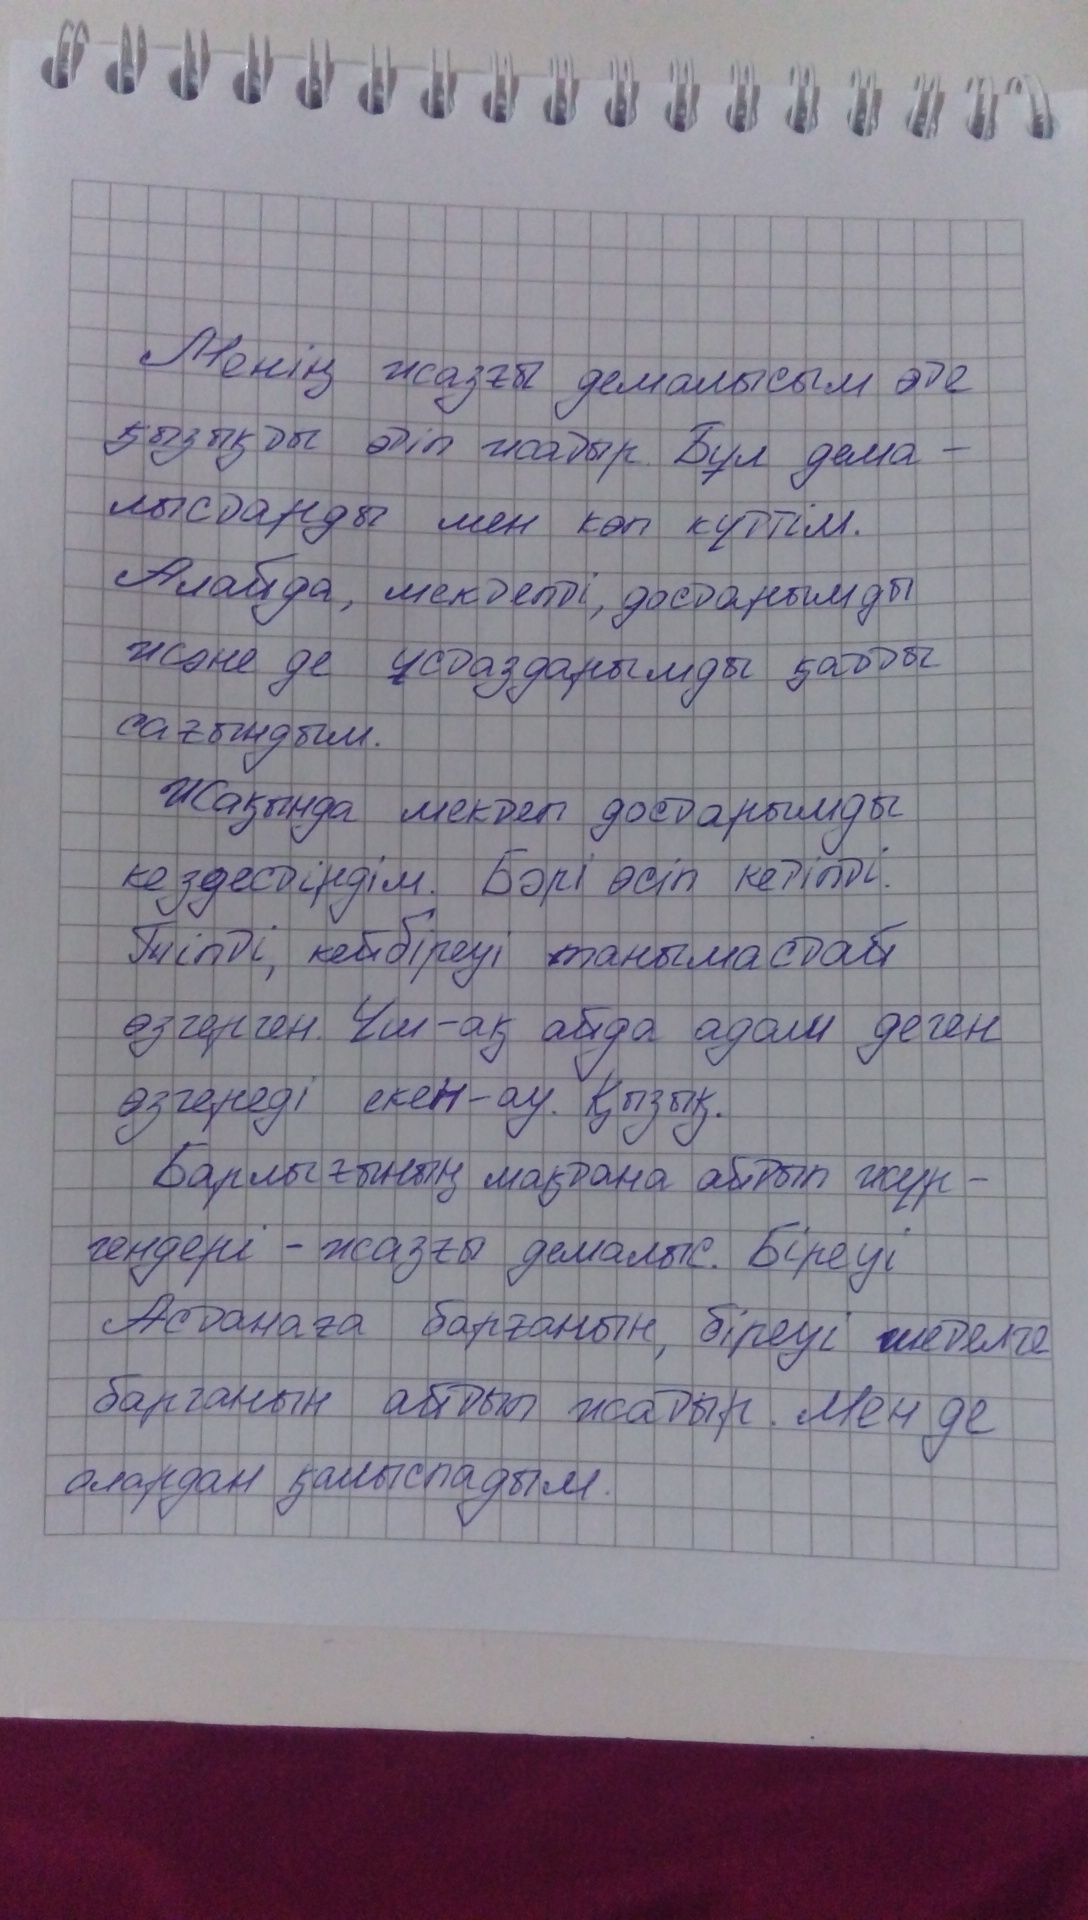 Менің жазғы демалысым өте
қызықты өтіп жатыр. Бұл дема-
лыстарды мен көп күттім.
Алайда, мектепті, достарымды
және де ұстаздарымды қатты
сағындым.
Жақында мектеп достарымды
кездестірдім. Бәрі өсіп кетіпті.
Тіпті, кейбіреуі танымастай
өзгерген. Үш-ақ айда адам деген
өзгереді екен-ау. Қызық.
Барлығының мақтана айтып жүр-
гендері - жазғы демалыс. Біреуі
Астанаға барғанын, біреуі шетелге
барғанын айтып жатыр. Мен де
олардан қалыспадым.